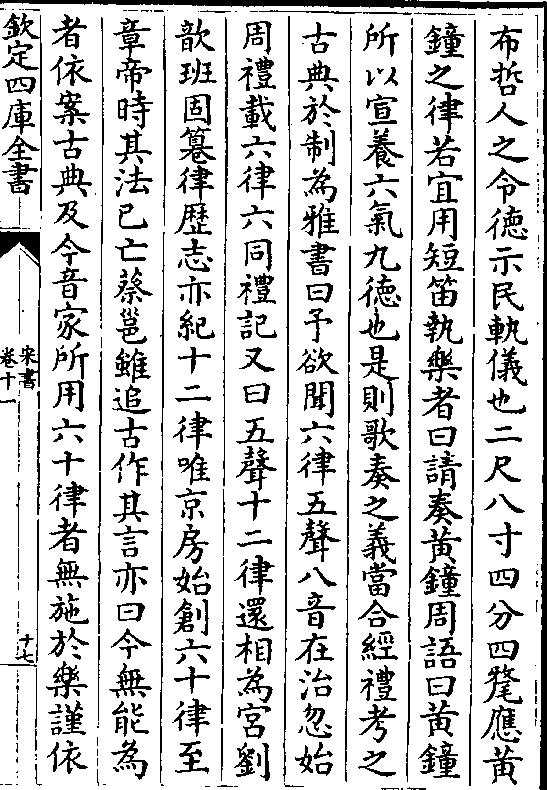 布哲人之令德示民軌儀也二尺八寸四分四氂應黃
鐘之律若宜用短笛執樂者曰請奏黃鐘周語曰黃鐘
所以宣養六氣九德也是則歌奏之義當合經禮考之
古典於制為雅書曰予欲聞六律五聲八音在治忽始
周禮載六律六同禮記又曰五聲十二律還相為宮劉
歆班固纂律歷志亦紀十二律唯京房始創六十律至
章帝時其法已亡蔡邕雖追古作其言亦曰今無能為
者依案古典及今音家所用六十律者無施於樂謹依
欽定四庫全書
宋書
卷十一
十七